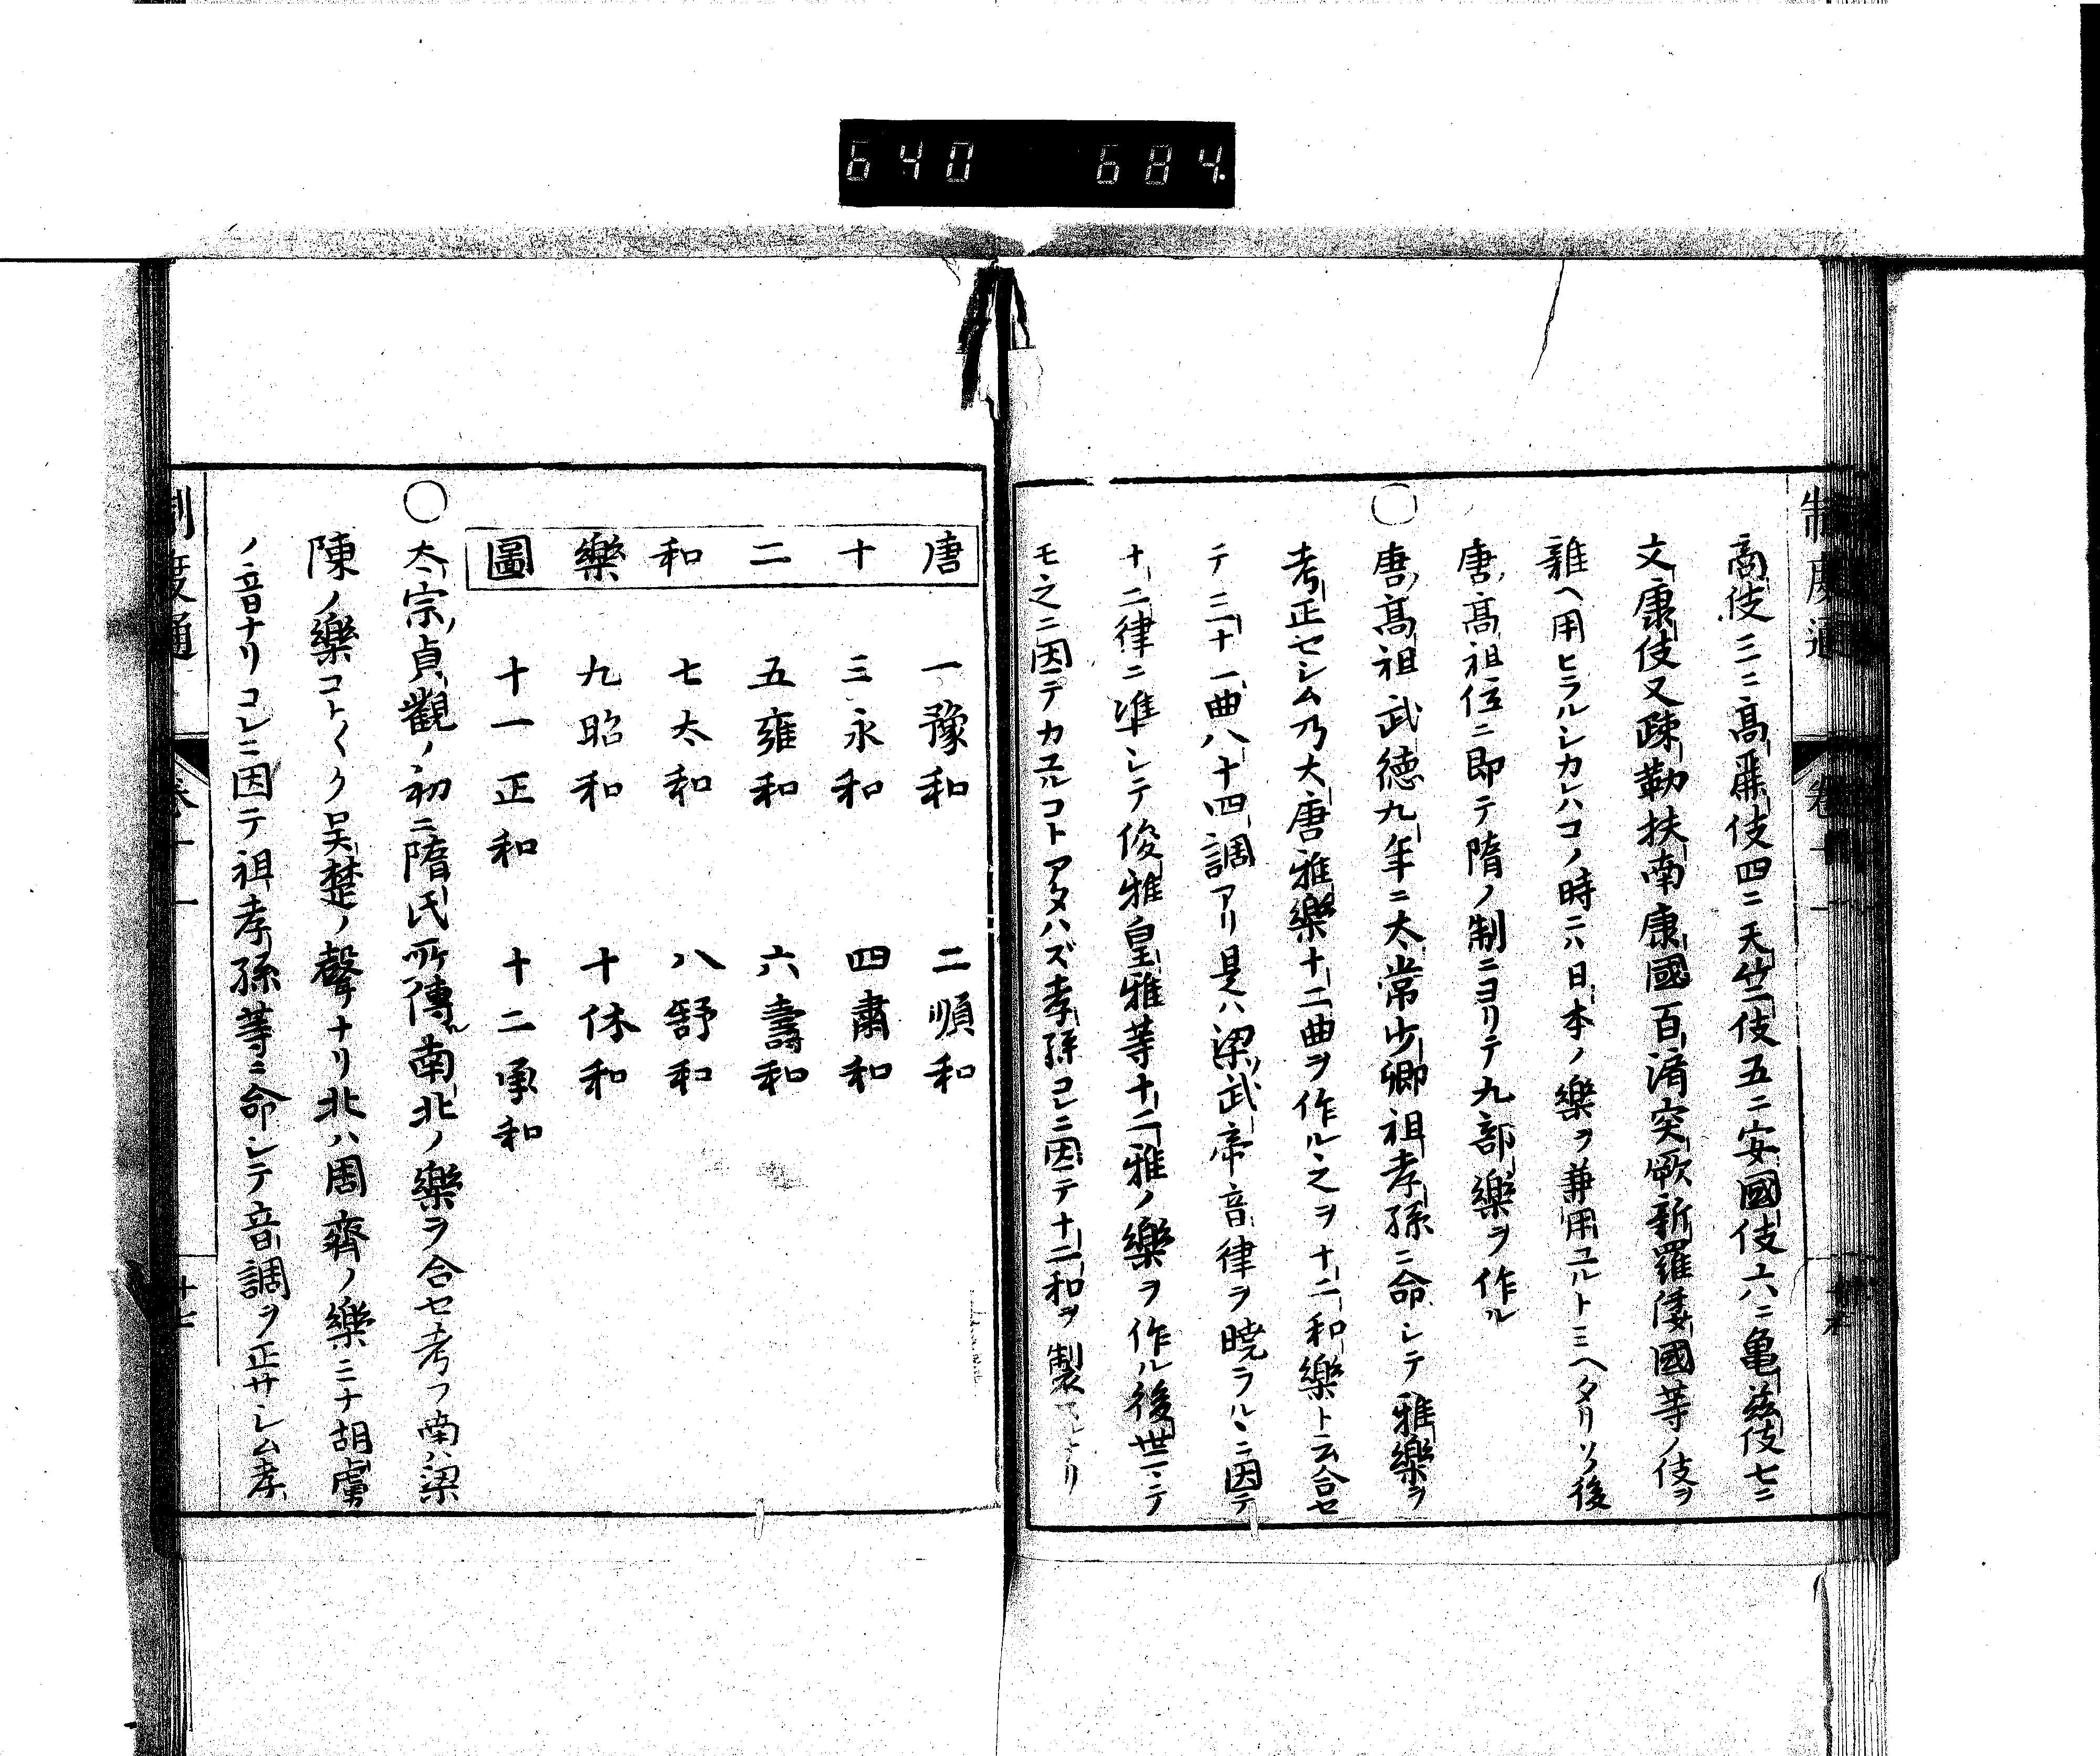 640 684
制度通 卷十一
商伎三ニ高麗伎四ニ天竺伎五ニ安國伎六ニ亀茲伎七ニ
文康伎又疎勒扶南康國百済突厥新羅倭國等ノ伎ヲ
雜ヘ用ヒラルシカレハコノ時ニハ日本ノ樂ヲ兼用ユルトミヘタリソノ後
唐ノ髙祖位ニ即テ隋ノ制ニヨリテ九部樂ヲ作ル
〇唐ノ髙祖武徳九年ニ太常少卿祖孝孫ニ命シテ雅樂ヲ
考正セシム乃大唐雅樂十二曲ヲ作ル之ヲ十二和樂ト云合セ
テ三十一曲八十四調アリ是ハ梁ノ武帝音律ヲ暁ラルヽニ因テ
十二律ニ準シテ俊雅皇雅等十二雅ノ樂ヲ作ル後世ニテ
モ之ニ因テカユルコトアタハズ孝孫コレニ因テ十二和ヲ製
唐十二和樂圖
一豫和 二順和
三永和 四肅和
五雍和 六壽和
七太和 八舒和
九昭和 十休和
十一正和 十二承和
〇太宗ノ貞觀ノ初ニ隋氏所傳ル南北ノ樂ヲ合セ考フ南ハ梁
陳ノ樂コト〱ク吴楚ノ聲ナリ北ハ周齊ノ樂ミナ胡虜
ノ音ナリコレニ因テ祖孝孫等ニ命シテ音調ヲ正サレム孝
制度通 卷十一 十七